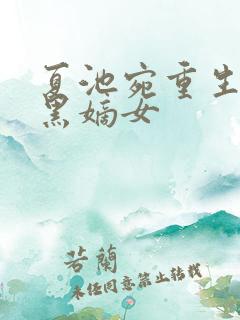 夏池宛重生
黑嫡女
若蘭
未经同意禁止转载